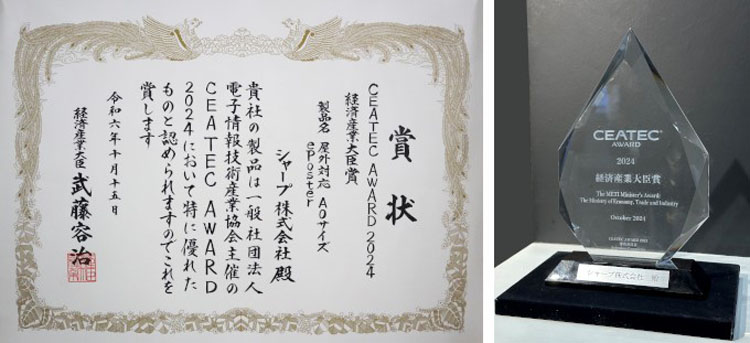 賞状
CEATEC AWARD 2024
経済産業大臣賞
製品名 屋外対応 A0サイズ
ePoster
シャープ株式会社 殿
貴社の製品は一般社団法人
電子情報技術産業協会主催の
CEATEC AWARD
2024において特に優れた
ものと認められますのでこれを
賞します
令和六年十月十五日
経済産業大臣 武藤容治
CEATEC®
AWARD
2024
経済産業大臣賞
The METI Minister's Award:
The Ministry of Economy, Trade and Industry
October 2024
CEATEC AWARD 2024
シャープ株式会社 殿